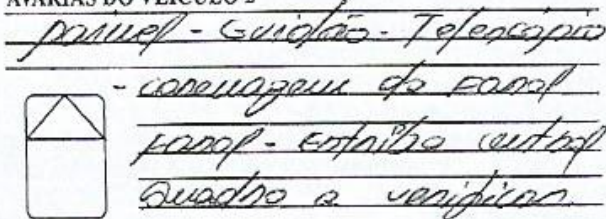 AVARIAS DO VEÍCULO 2
painel - Guidão - Telescópio
- carenagem do Farol
Farol - Estribo central
Quadro a verificar